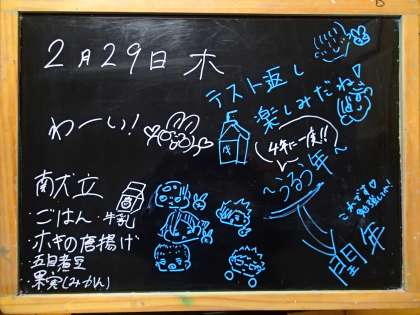 2月29日 木
テスト返し
楽しみだね!
わーい!
4年に一度!!
~うるう年~
閏年
これです♡
献立
ごはん・牛乳
ホキの唐揚げ
五目煮豆
果実(みかん)